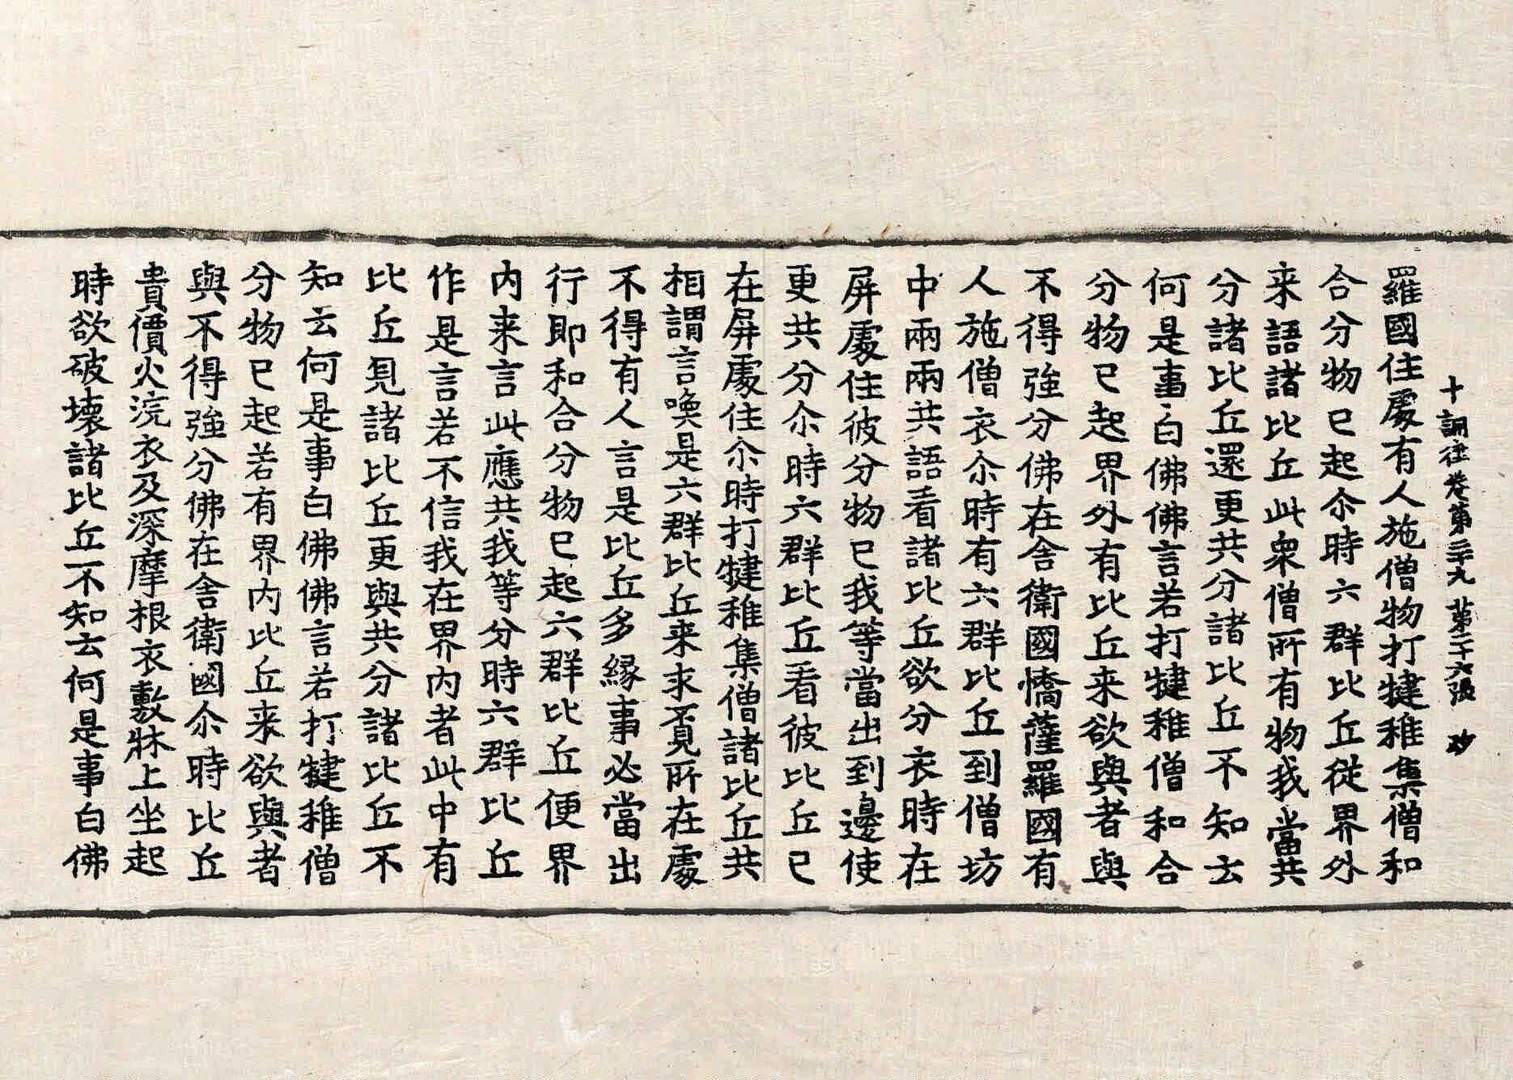 十誦律卷第三十九 第二十六張 妙
羅國住處有人施僧物打揵稚集僧和
合分物已起尒時六群比丘從界外
来語諸比丘此衆僧所有物我當共
分諸比丘還更共分諸比丘不知云
何是事白佛佛言若打揵稚僧和合
分物已起界外有比丘来欲與者與
不得強分佛在舍衛國憍薩羅國有
人施僧衣尒時有六群比丘到僧坊
中兩兩共語看諸比丘欲分衣時在
屏處住彼分物已我等當出到邊使
更共分尒時六群比丘看彼比丘已
在屏處住尒時打揵稚集僧諸比丘共
相謂言喚是六群比丘来求覔所在處
不得有人言是比丘多緣事必當出
行即和合分物已起六群比丘便界
内来言此應共我等分時六群比丘
作是言若不信我在界内者此中有
比丘見諸比丘更與共分諸比丘不
知云何是事白佛佛言若打揵稚僧
分物已起若有界内比丘来欲與者
與不得強分佛在舍衛國尒時比丘
貴價火浣衣及深摩根衣敷牀上坐起
時欲破壞諸比丘不知云何是事白佛